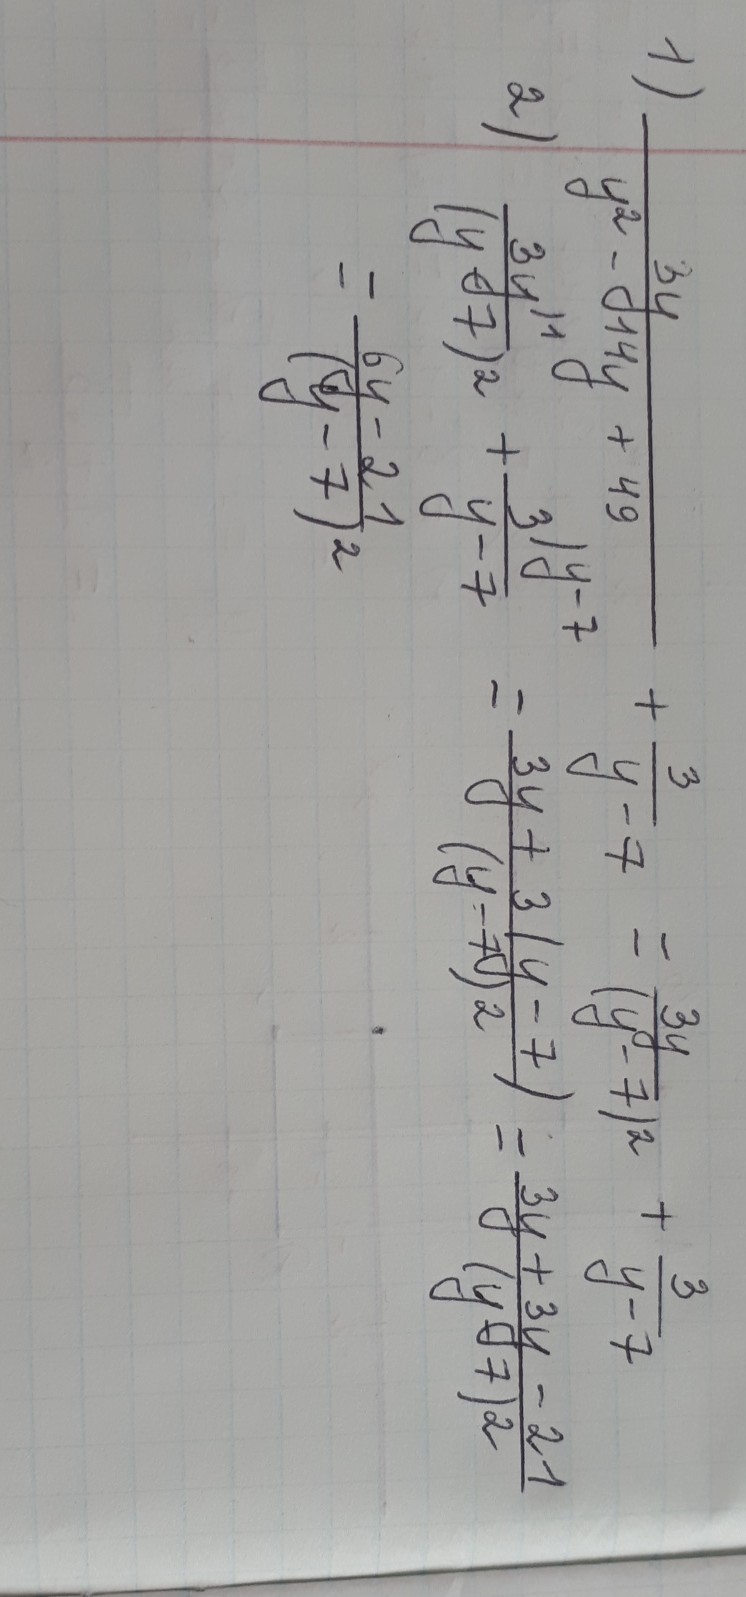 1) 3y/(y² - 14y + 49) + 3/(y - 7) = 3y/(y - 7)² + 3/(y - 7)
2) 3y^{\1}/(y - 7)² + 3^{\y - 7}/(y - 7) = (3y + 3(y - 7))/(y - 7)² = (3y + 3y - 21)/(y - 7)²
= (6y - 21)/(y - 7)²